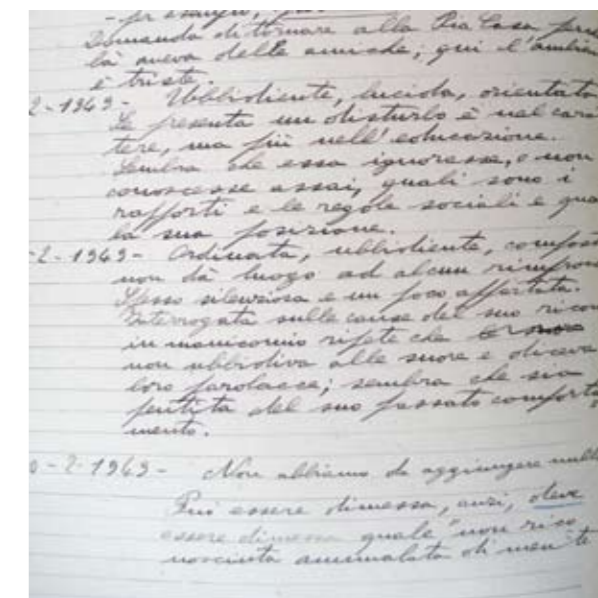 Domanda di tornare alla Pia Casa per
là aveva delle amiche; qui l'ambien
è triste.
2-1963- Ubbidiente, lucida, orientata
Se presenta un disturbo è nel carat
tere, ma più nell'educazione.
Sembra che essa ignorasse, o non
conoscesse assai, quali sono i
rapporti e le regole sociali e qua
la sua posizione.
-2-1963- Ordinata, ubbidiente, compost
non dà luogo ad alcun rimprov
Spesso silenziosa e un poco
Interrogata sulle cause del suo ricov
in manicomio ripete che
non ubbidiva alle suore e diceva
loro parolacce; sembra che sia
pentita del suo passato comporta
mento.
0-2-1963- Non abbiamo da aggiungere nulla
Può essere dimessa, anzi, deve
essere dimessa quale "non rico
nosciuta ammalata di mente